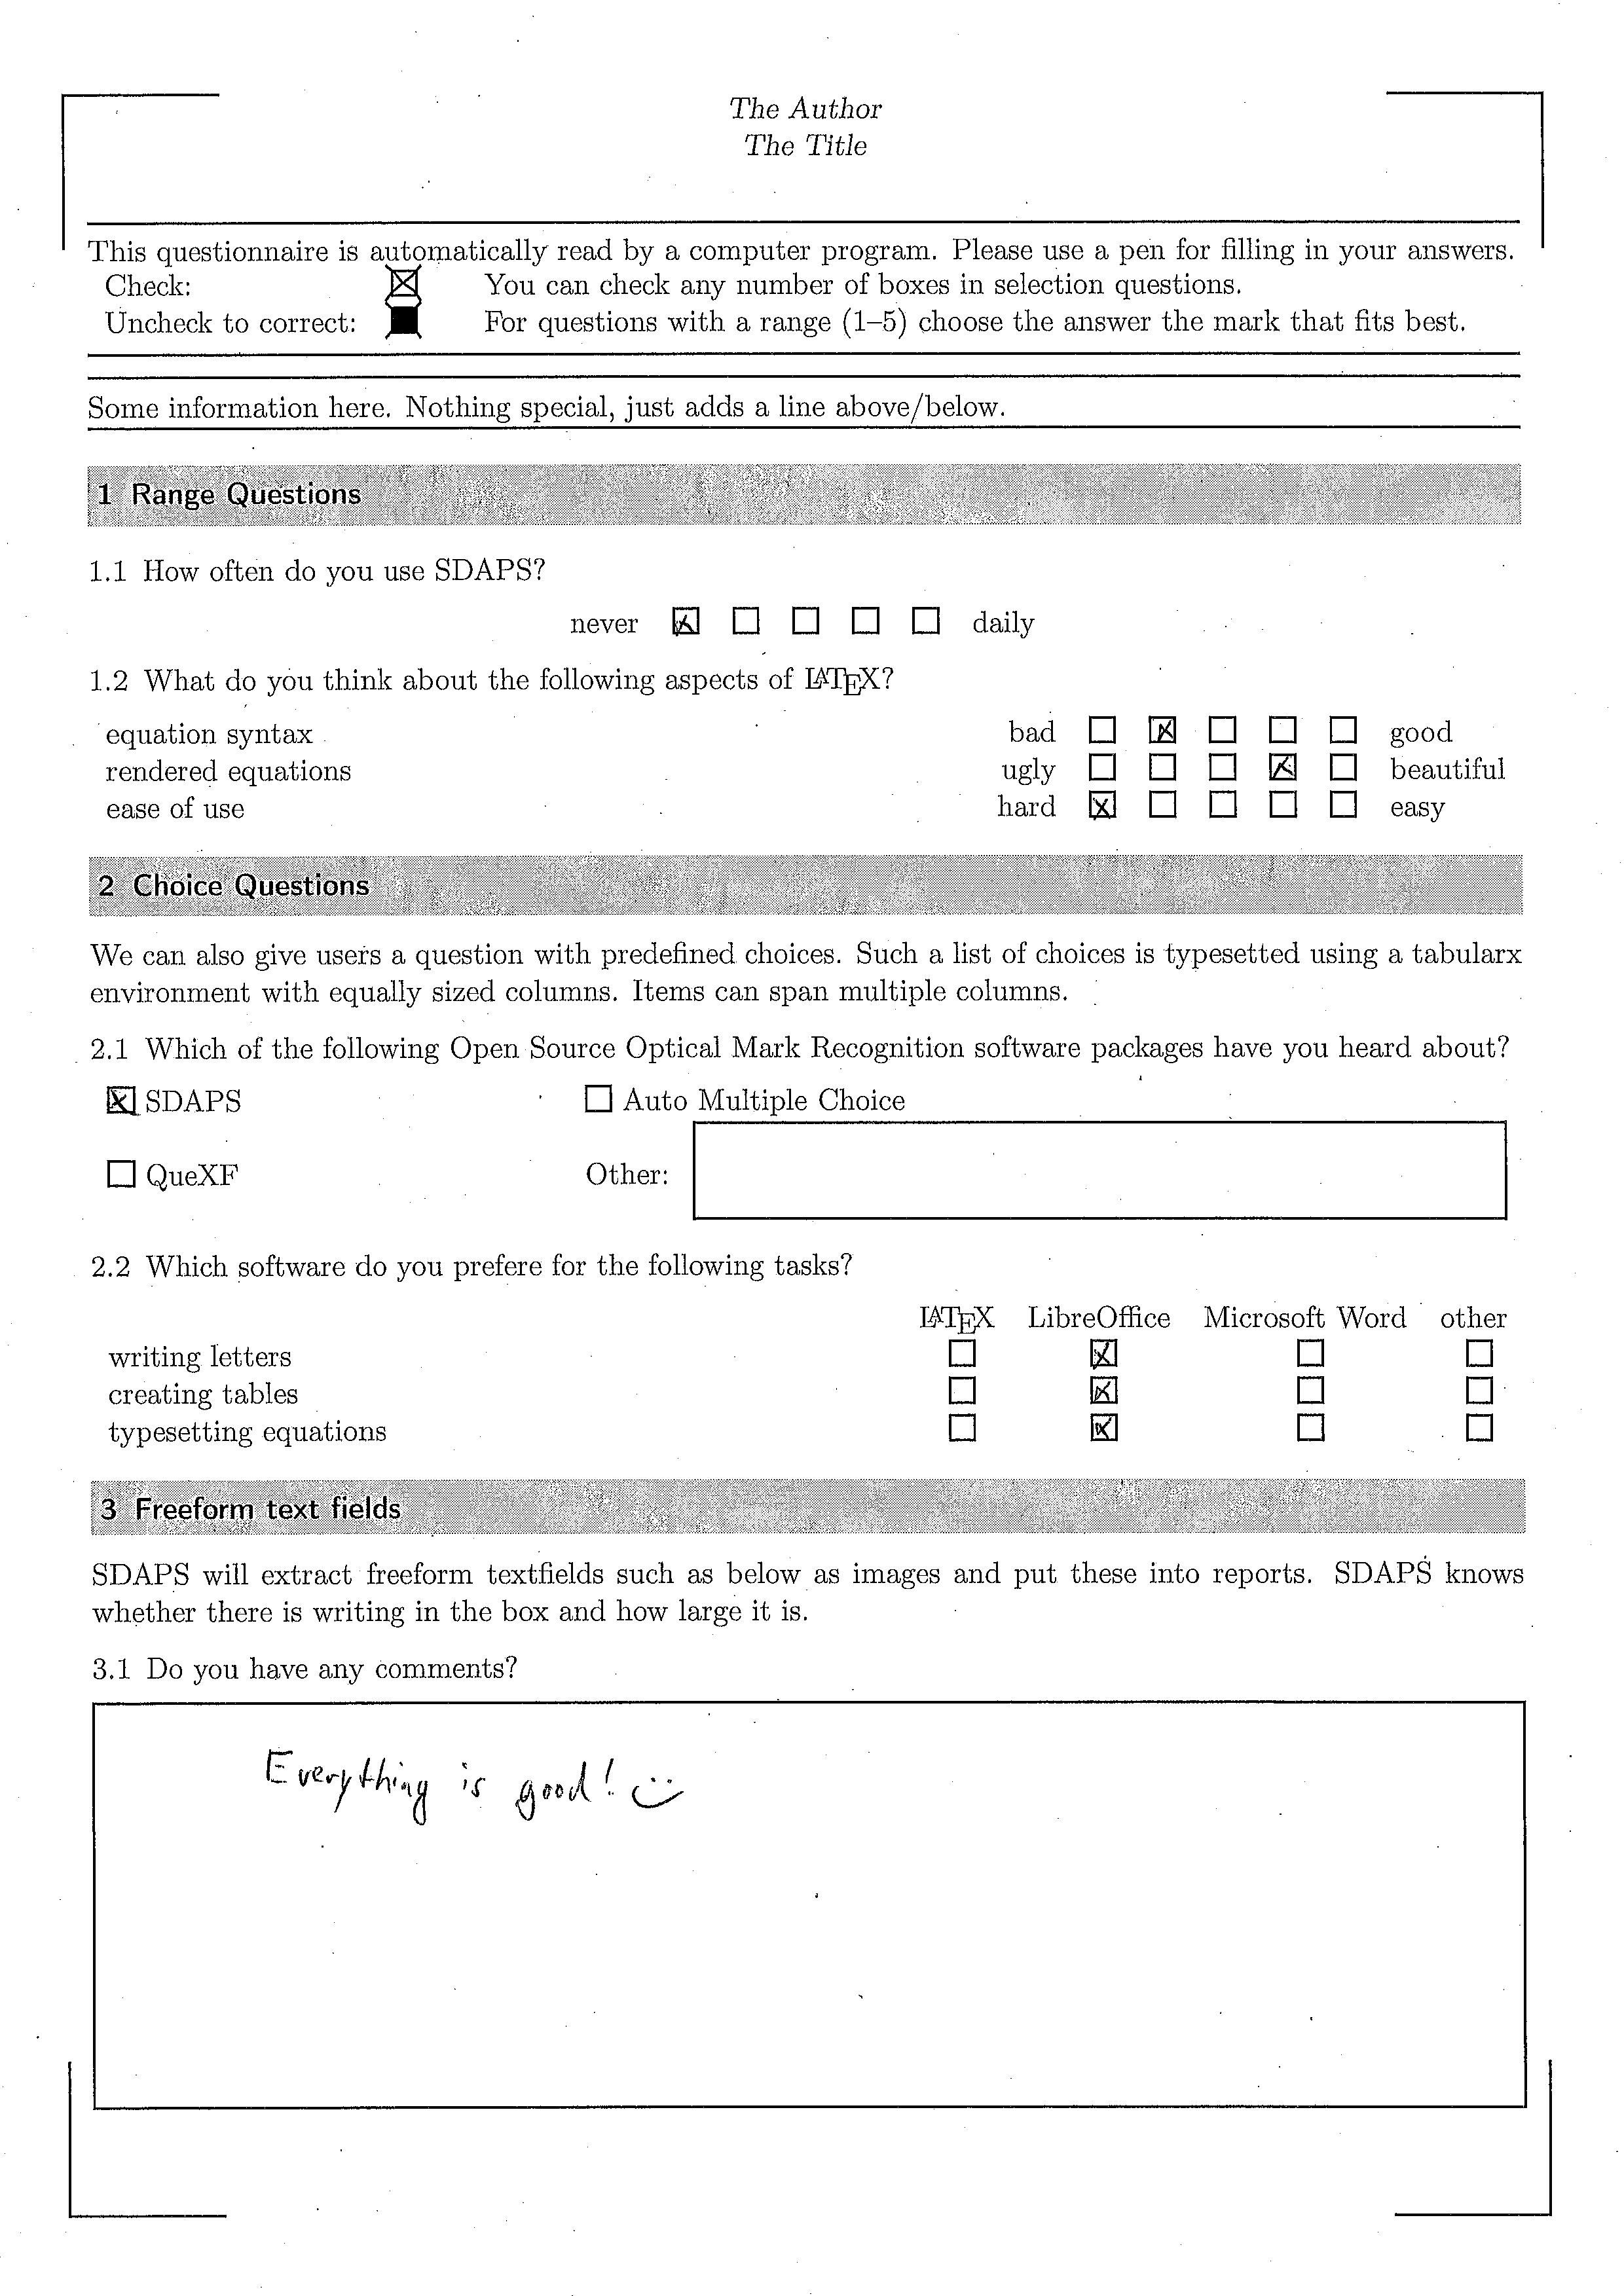 The Author
The Title
This questionnaire is automatically read by a computer program. Please use a pen for filling in your answers.
Check: You can check any number of boxes in selection questions.
Uncheck to correct: For questions with a range (1–5) choose the answer the mark that fits best.
Some information here. Nothing special, just adds a line above/below.
1 Range Questions
1.1 How often do you use SDAPS?
never ☒ ☐ ☐ ☐ ☐ daily
1.2 What do you think about the following aspects of LATEX?
equation syntax bad ☐ ☒ ☐ ☐ ☐ good
rendered equations ugly ☐ ☐ ☐ ☒ ☐ beautiful
ease of use hard ☒ ☐ ☐ ☐ ☐ easy
2 Choice Questions
We can also give users a question with predefined choices. Such a list of choices is typesetted using a tabularx
environment with equally sized columns. Items can span multiple columns.
2.1 Which of the following Open Source Optical Mark Recognition software packages have you heard about?
☒ SDAPS ☐ Auto Multiple Choice
☐ QueXF Other:
2.2 Which software do you prefere for the following tasks?
LATEX LibreOffice Microsoft Word other
writing letters ☐ ☒ ☐ ☐
creating tables ☐ ☒ ☐ ☐
typesetting equations ☐ ☒ ☐ ☐
3 Freeform text fields
SDAPS will extract freeform textfields such as below as images and put these into reports. SDAPS knows
whether there is writing in the box and how large it is.
3.1 Do you have any comments?
Everything is good! :)